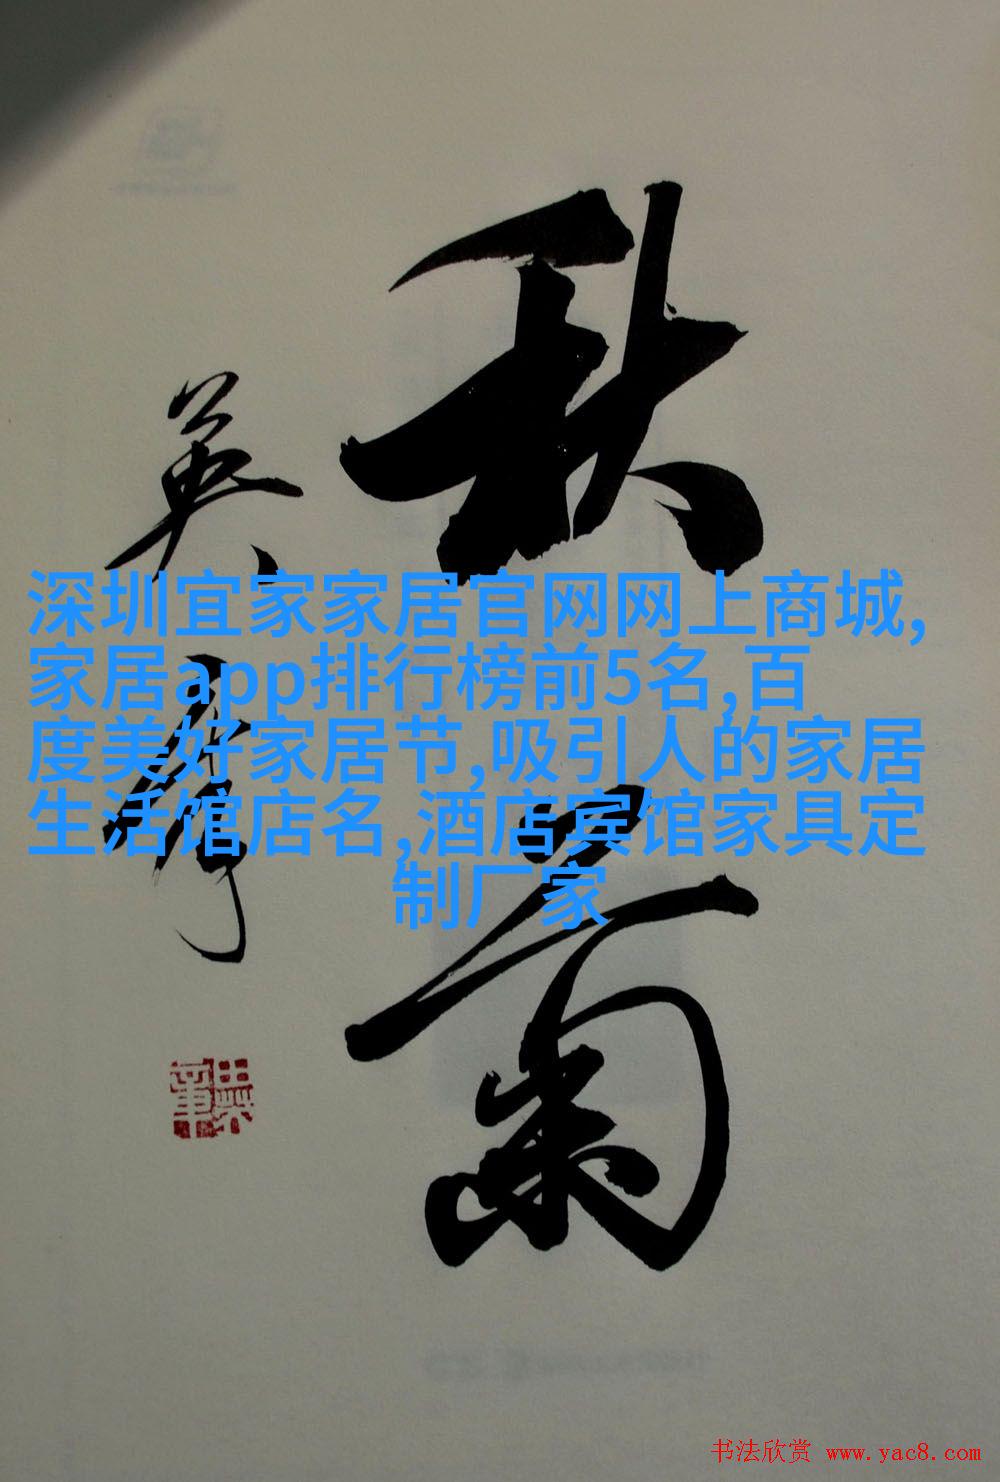 秋菊
英序
深圳宜家家居官网网上商城,
家居app排行榜前5名,百
度美好家居节,吸引人的家居
生活馆店名,酒店宾馆家具定
制厂家
书法欣赏 www.yac8.com